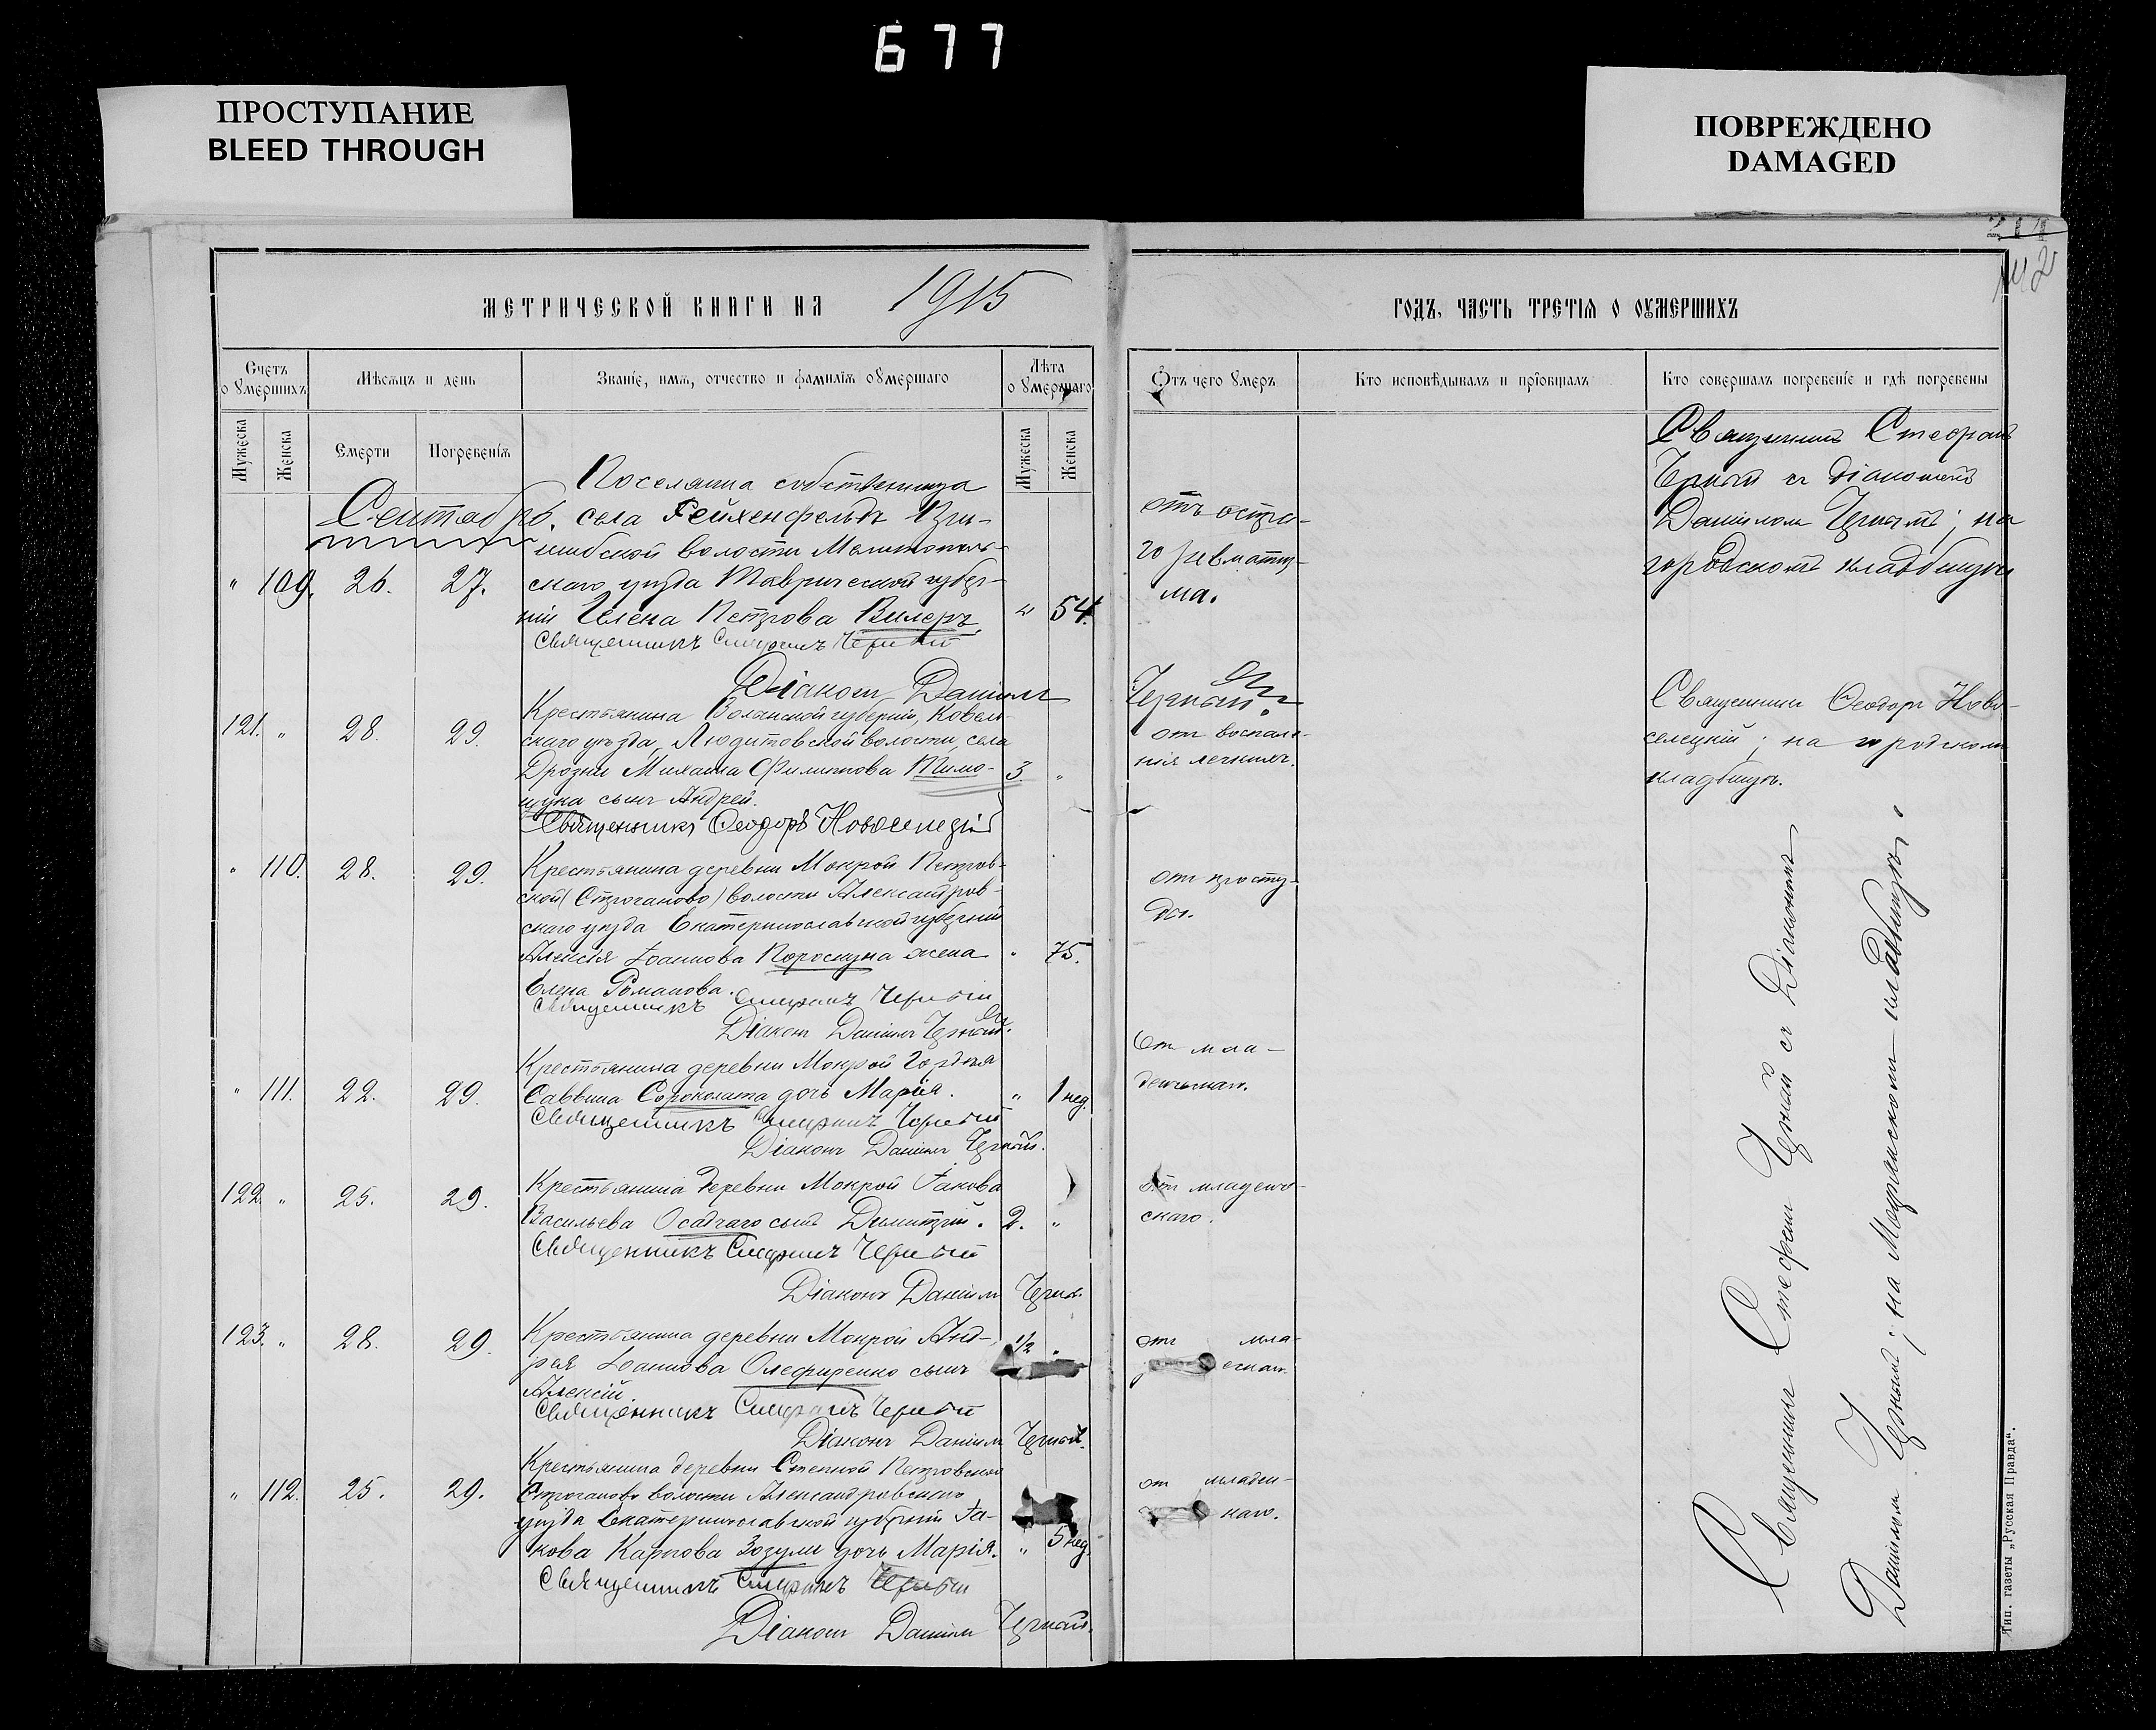 677
ПРОСТУПАНИЕ
BLEED THROUGH
ПОВРЕЖДЕНО
DAMAGED
142
МЕТРИЧЕСКОЙ КНИГИ НА 1915
ГОДЪ, ЧАСТЬ ТРЕТІЯ О ОУМЕРШИХЪ
Счетъ о Умершихъ
Мѣсяцъ и день
Званіе, имя, отчество и фамилія оумершаго
Лѣта о Умершаго
Отъ чего Умеръ
Кто исповѣдывалъ и пріобщалъ
Кто совершалъ погребеніе и гдѣ погребены
Мужеска
Женска
Смерти
Погребенія
Мужеска
Женска
Сентябрь.
" 109. 26. 27.
Поселянина собственница
села Рейхенфельдъ При-
шибской волости Мелитополь-
скаго уѣзда Таврической губер-
ніи Елена Петрова Вилеръ
" 54.
Священникъ Стефанъ Черный
Діаконъ Даніилъ Черный.
отъ остра-
го ревматиз-
ма.
Священникъ Стефанъ
Черный съ діакономъ
Даніиломъ Чернымъ; на
городскомъ кладбищѣ
121. " 28. 29.
Крестьянина Волынской губерніи, Ковель-
скаго уѣзда, Людитовской волости, села
Дрозни Михаила Филиппова Тимо-
щука сынъ Андрей.
3. "
Священникъ Ѳеодоръ Новоселецкій
отъ воспале-
нія легкихъ.
Священникъ Ѳеодоръ Ново-
селецкій; на городскомъ
кладбищѣ.
" 110. 28. 29.
Крестьянина деревни Мокрой Петров-
ской (Строганово) волости Александров-
скаго уѣзда Екатеринославской губерніи
Алексія Іоаннова Пороскуна жена
Елена Романова.
" 75.
Священникъ Стефанъ Черный
Діаконъ Даніилъ Черный.
отъ просту-
ды.
" 111. 22. 29.
Крестьянина деревни Мокрой Гордѣя
Саввина Сороколата дочь Марія.
" 1 нед.
Священникъ Стефанъ Черный
Діаконъ Даніилъ Черный.
Отъ мла-
денческаго.
122. " 25. 29.
Крестьянина деревни Мокрой Іакова
Васильева Осадчаго сынъ Димитрій.
2. "
Священникъ Стефанъ Черный
Діаконъ Даніилъ Черный.
отъ младенче-
скаго.
123. " 28. 29.
Крестьянина деревни Мокрой Анд-
рея Іоаннова Олефиренко сынъ
Алексій.
1/2 "
Священникъ Стефанъ Черный
Діаконъ Даніилъ Черный.
отъ мла-
ескаго.
" 112. 25. 29.
Крестьянина деревни Степной Петровской
Строганово волости Александровскаго
уѣзда Екатеринославской губерніи Іа-
кова Карпова Зозули дочь Марія.
" 5 нед.
Священникъ Стефанъ Черный
Діаконъ Даніилъ Черный.
отъ младен-
скаго.
Священникъ Стефанъ Черный съ Діакономъ
Даніиломъ Чернымъ; на Мокрянскомъ кладбищѣ.
Тип. газеты „Русская Правда“.